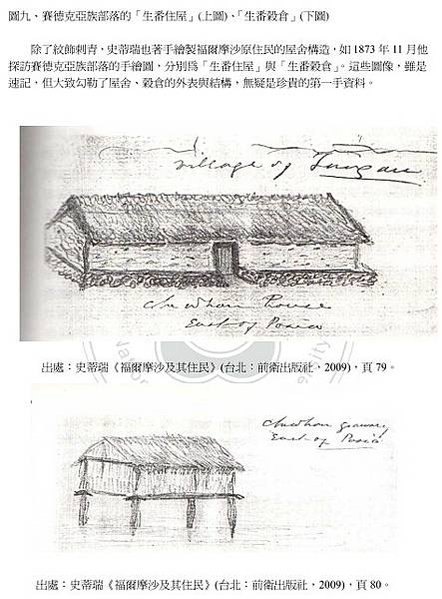 圖九、賽德克亞族部落的「生番住屋」(上圖)、「生番穀倉」(下圖)
除了紋飾刺青，史蒂瑞也著手繪製福爾摩沙原住民的屋舍構造，如 1873 年 11 月他
探訪賽德克亞族部落的手繪圖，分別為「生番住屋」與「生番穀倉」。這些圖像，雖是
速記，但大致勾勒了屋舍、穀倉的外表與結構，無疑是珍貴的第一手資料。
village of
House
East of Posia
出處：史蒂瑞《福爾摩沙及其住民》(台北：前衛出版社，2009)，頁 79。
granary
East of Posia
出處：史蒂瑞《福爾摩沙及其住民》(台北：前衛出版社，2009)，頁 80。